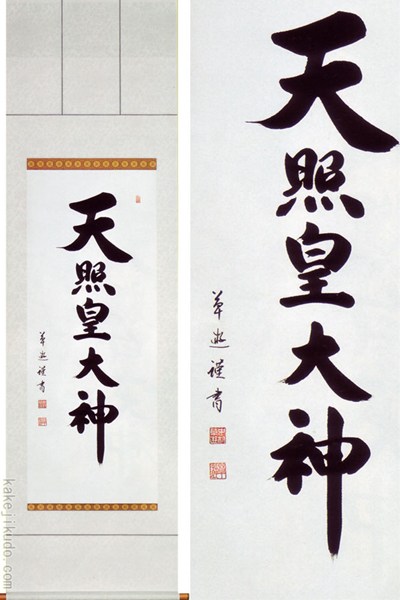 天照皇大神
謹書
天照皇大神
謹書
kakejikudo.com